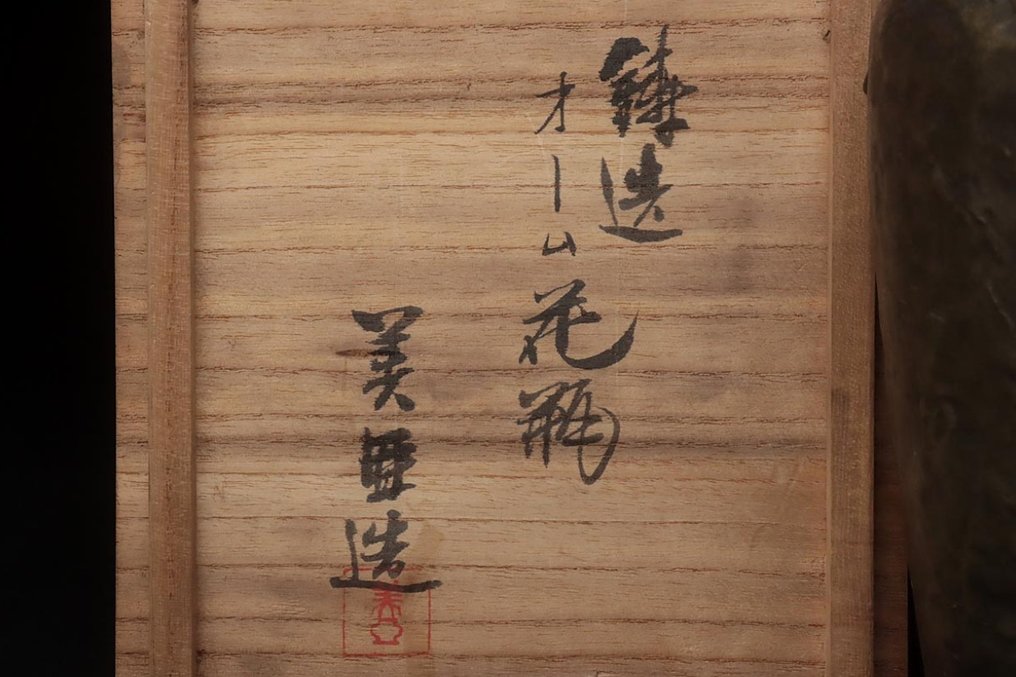 鋳造
オーム花瓶
美亜造